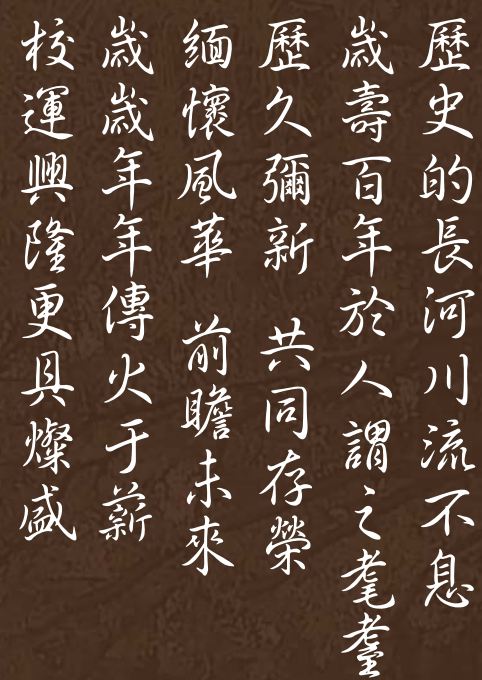 歷史的長河川流不息
歲壽百年於人謂之耄耋
歷久彌新 共同存榮
緬懷風華 前瞻未來
歲歲年年傳火于薪
校運興隆更具燦盛